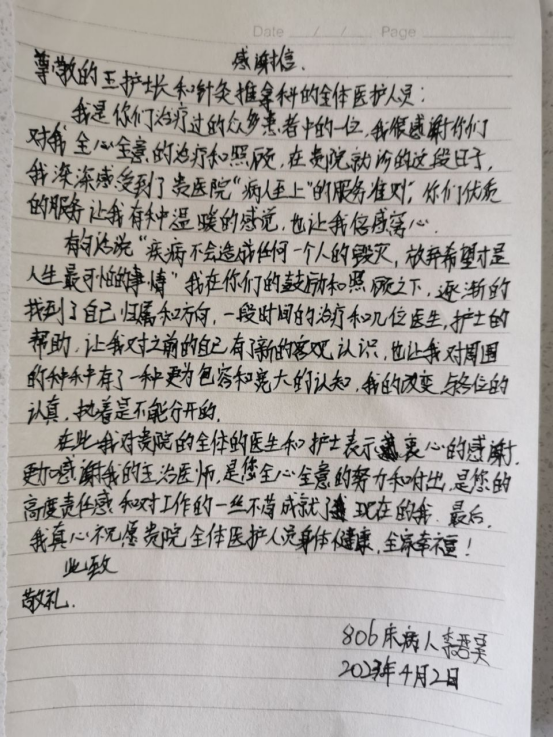 Date / / Page
感谢信.
尊敬的王护士长和针灸推拿科的全体医护人员：
我是你们治疗过的众多患者中的一位，我很感谢你们
对我全心全意的治疗和照顾，在贵院就诊的这段日子，
我深深感受到了贵医院“病人至上”的服务准则；你们优质
的服务让我有种温暖的感觉，也让我倍感窝心.
有句话说“疾病不会造成任何一个人的毁灭，放弃希望才是
人生最可怕的事情”我在你们的鼓励和照顾之下，逐渐的
找到了自己归属和方向，一段时间的治疗和几位医生，护士的
帮助，让我对之前的自己有了新的客观认识，也让我对周围
的种种有了一种更为包容和宽大的认知，我的改变与各位的
认真，执着是不能分开的.
在此我对贵院的全体的医生和护士表示衷心的感谢.
更加感谢我的主治医师，是您全心全意的努力和付出，是您的
高度责任感和对工作的一丝不苟成就了现在的我. 最后，
我真心祝愿贵院全体医护人员身体健康，全家幸福！
此致
敬礼.
806床病人李
2023年4月2日